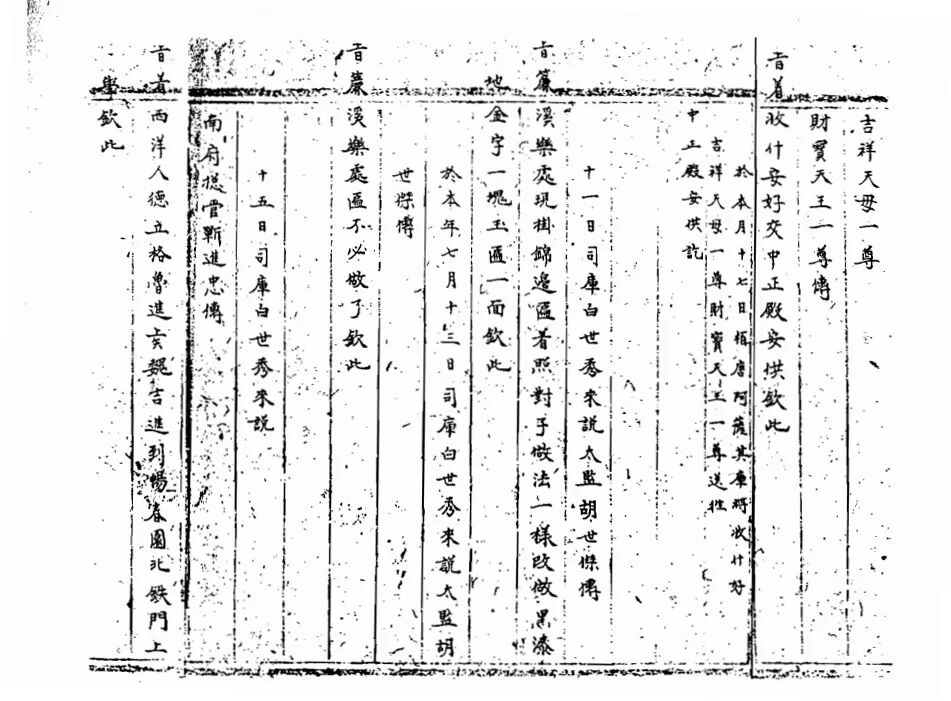 吉祥天母一尊
財寶天王一尊傳
旨着收什妥好交中正殿安供欽此
於本月十七日栢唐阿薩其庫將收什好
吉祥天母一尊財寶天王一尊送往
中正殿安供訖
十一日司庫白世秀來說太監胡世傑傳
旨簾溪樂處現掛錦邊匾着照對子做法一樣改做黑漆
地金字一塊玉匾一面欽此
於本年七月十三日司庫白世秀來說太監胡
世傑傳
旨簾溪樂處匾不必做了欽此
十五日司庫白世秀來說
南府總管靳進忠傳
旨着西洋人德立格魯進玄魏吉進到暢春園北鉄門上
學欽此